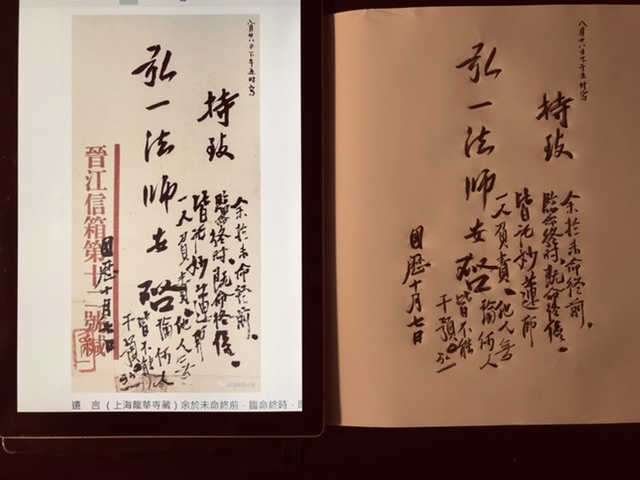 八月廿八日下午五时写
持致
弘一法師安啟
余於未命終前、
臨命終時、既命終後、
皆託妙蓮師
一人負責、他人無
論何人
皆不能
干預。
國歷十月七日
晉江信箱第十二號緘
遺 言（上海龍華寺藏）余於未命終前﹑臨命終時﹐
八月廿八日下午五时写
持致
弘一法師安啟
余於未命終前、
臨命終時、既命終後、
皆託妙蓮師
一人負責、他人無
論何人
皆不能
干預。
國歷十月七日